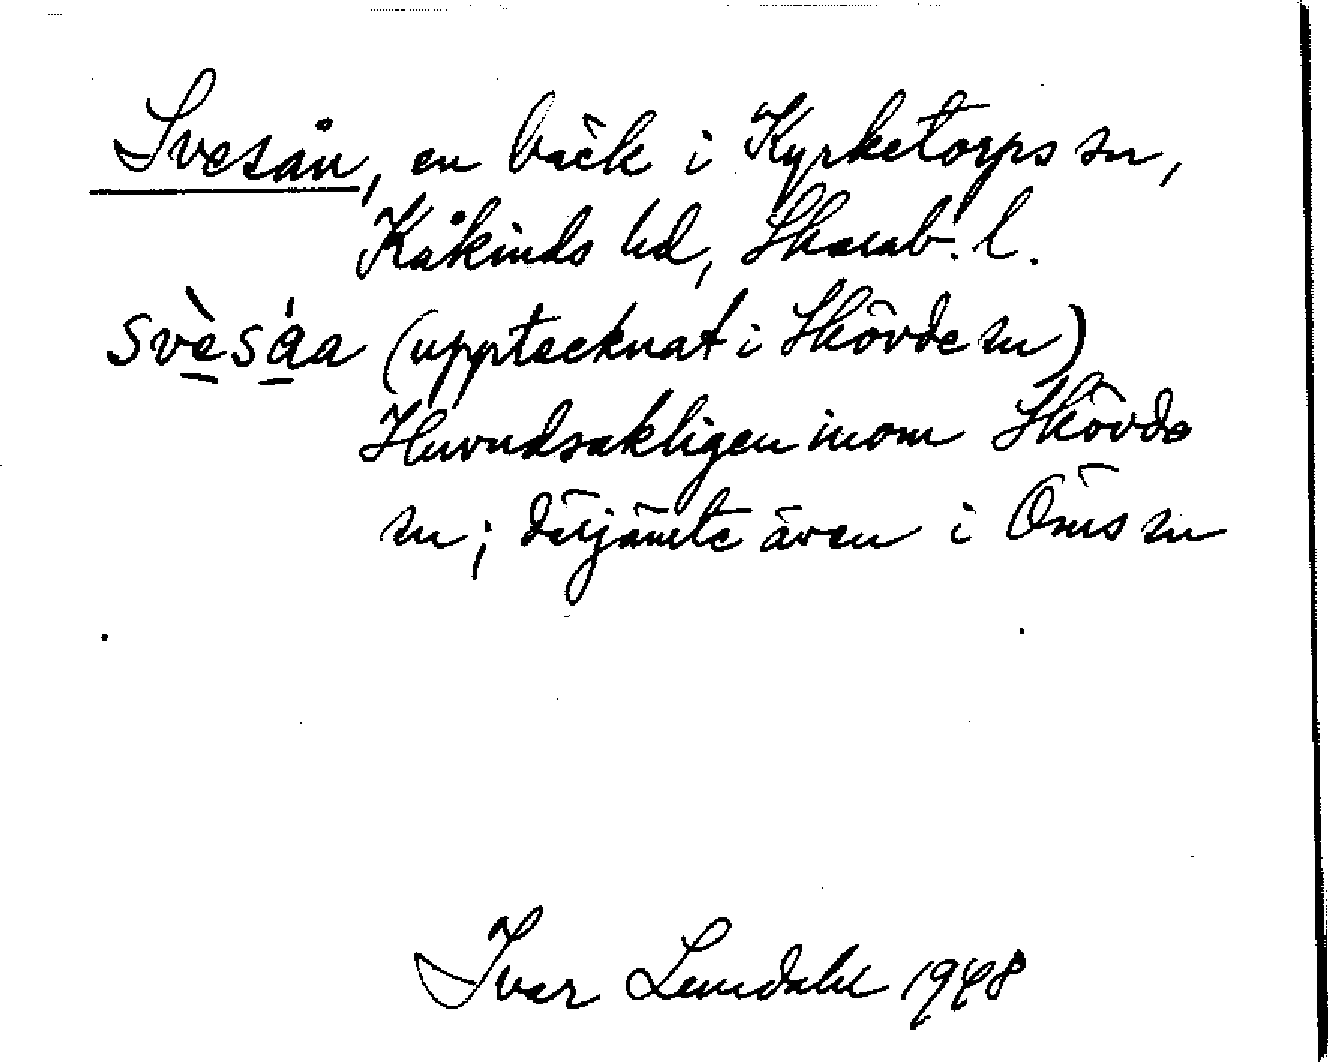 Svesån, en bäck i Kyrketorps sn,
Kåkinds hd, Skarab. l.
svèsåa (upptecknat i Skövde sn)
Huvudsakligen inom Skövde
sn; därjämte även i Öms sn
Ivar Lundahl 1948